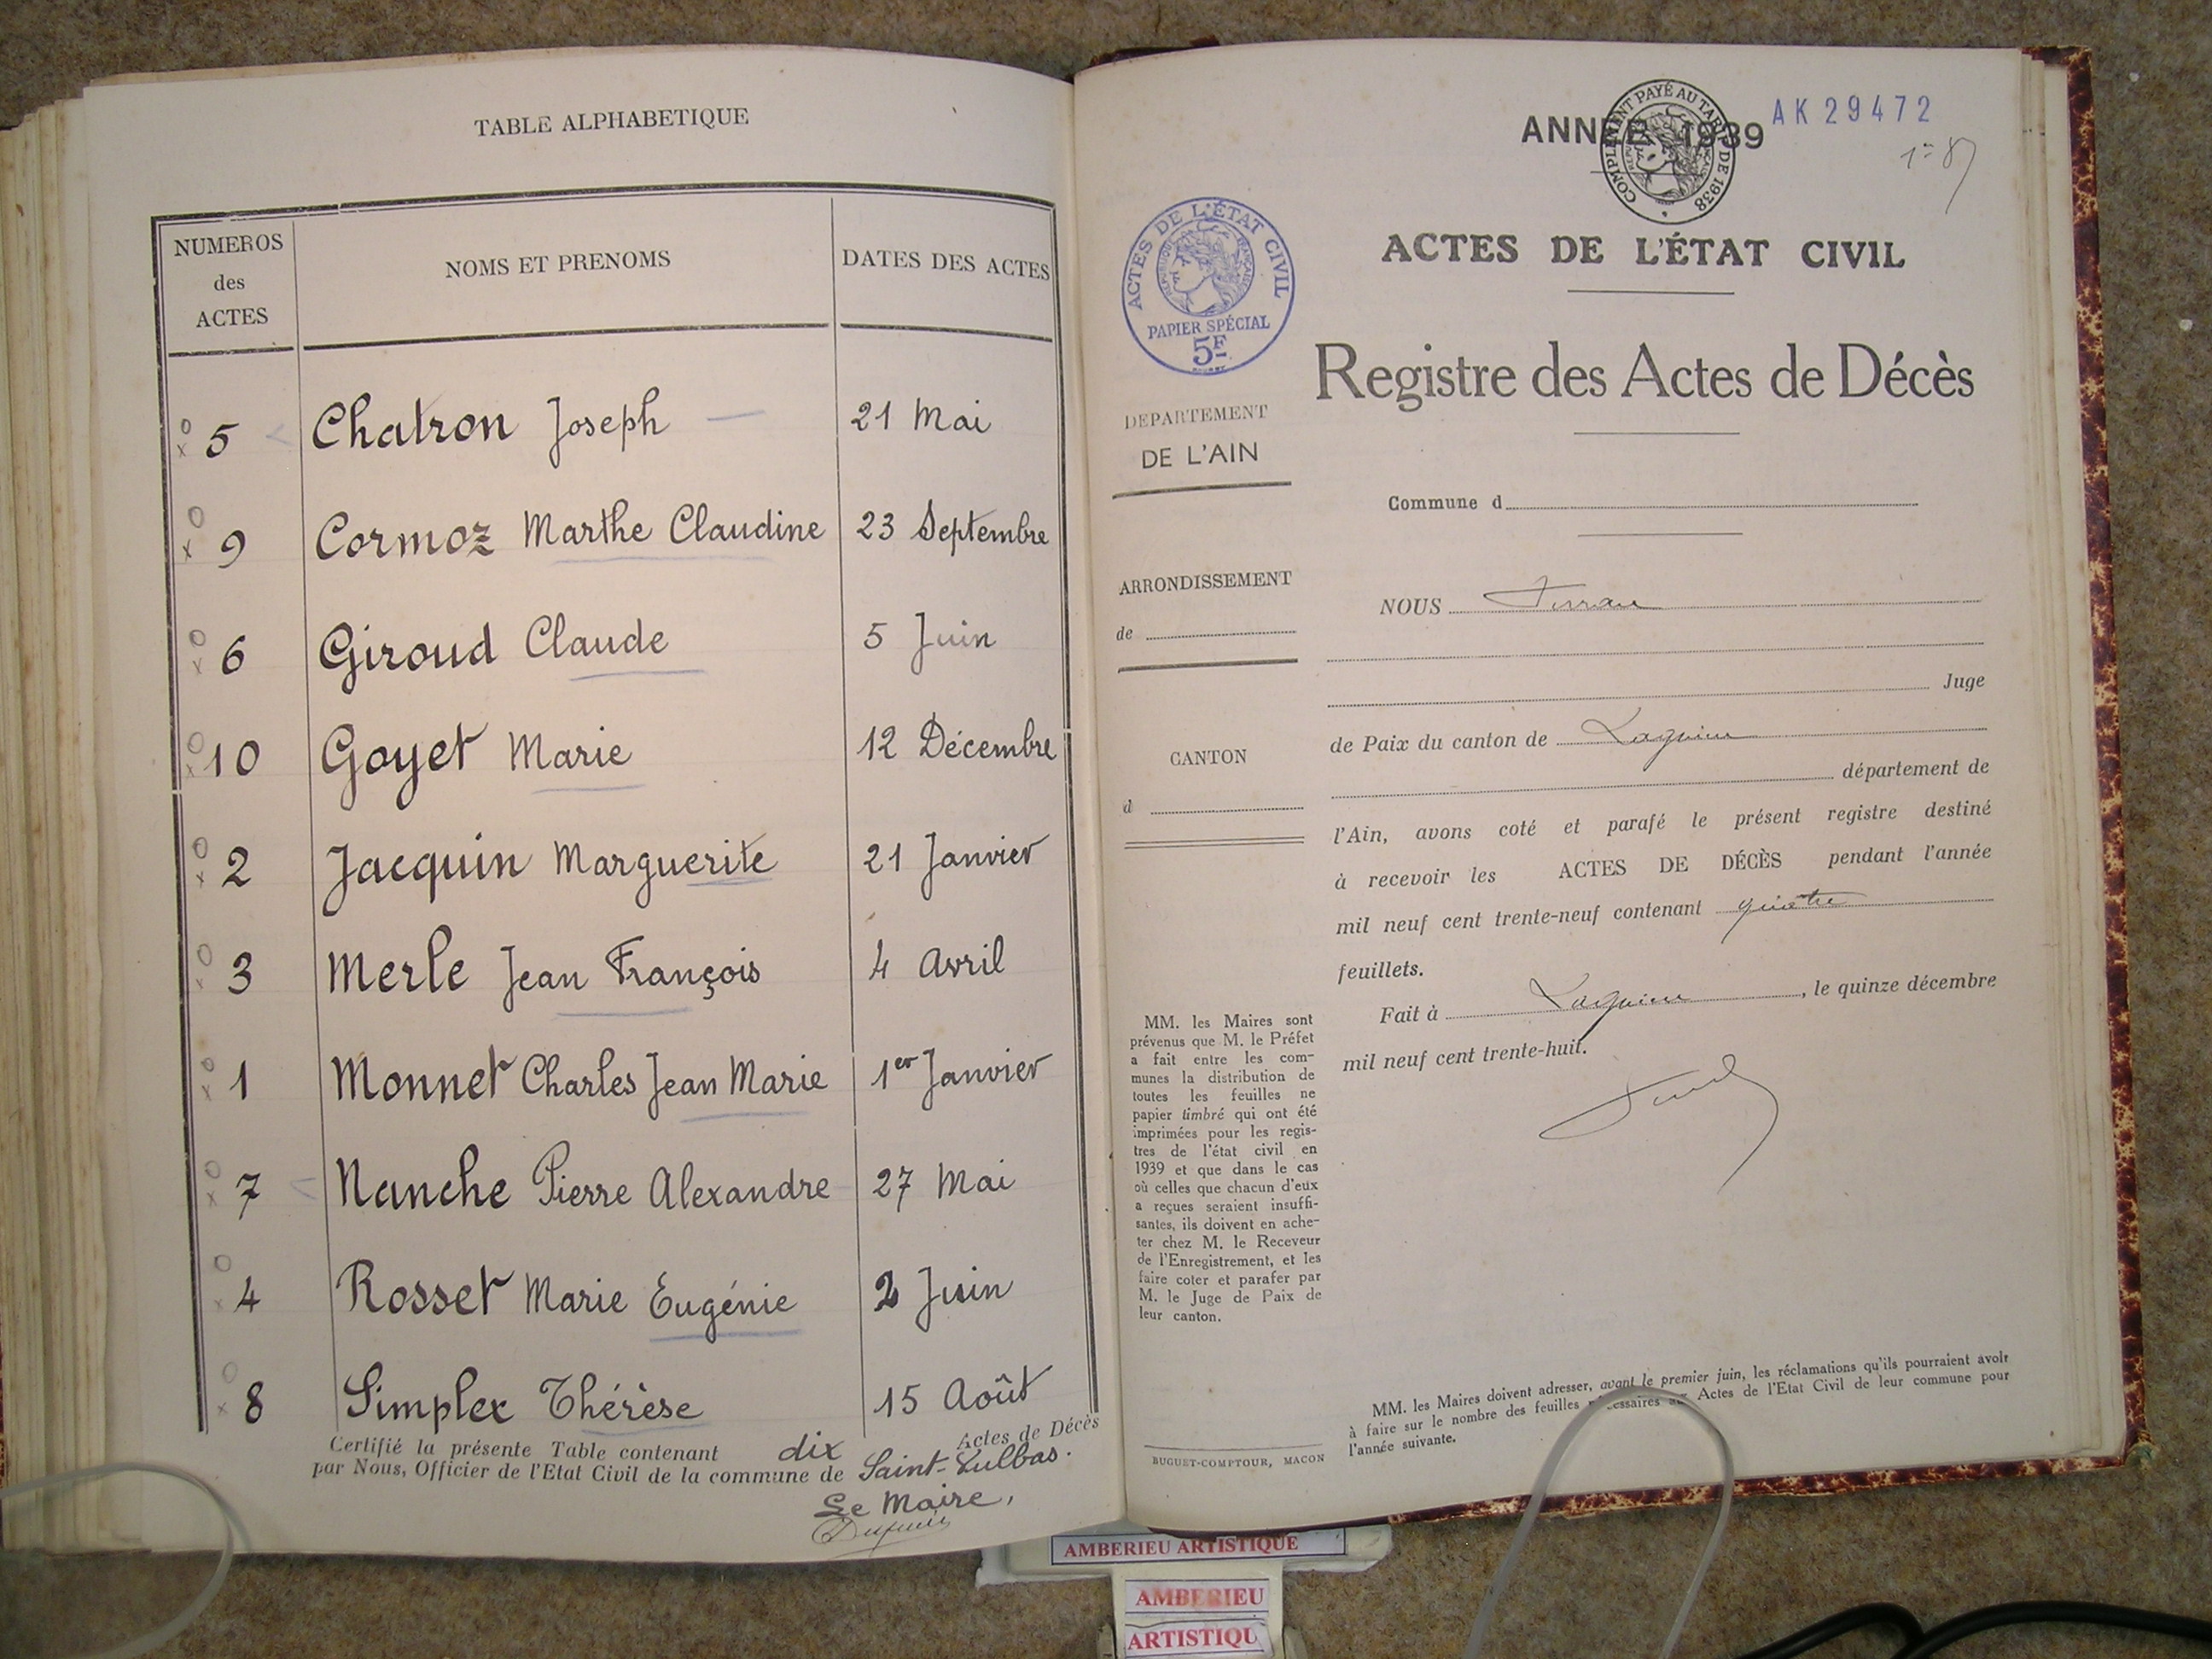 TABLE ALPHABETIQUE
NUMEROS des ACTES
NOMS ET PRENOMS
DATES DES ACTES
5 Chatron Joseph 21 Mai
9 Cormoz Marthe Claudine 23 Septembre
6 Giroud Claude 5 Juin
10 Goyet Marie 12 Décembre
2 Jacquin Marguerite 21 Janvier
3 Merle Jean François 4 Avril
1 Monnet Charles Jean Marie 1er Janvier
7 Nanche Pierre Alexandre 27 Mai
4 Rosset Marie Eugénie 2 Juin
8 Simplex Thérèse 15 Août
Certifié la présente Table contenant dix Actes de Décès
par Nous, Officier de l'Etat Civil de la commune de Saint-Vulbas.
Le Maire,
ANNÉE 1939
COMPLEMENT PAYÉ AU TARIF DE 1938
AK 29472
ACTES DE L'ÉTAT CIVIL
RÉPUBLIQUE FRANÇAISE
PAPIER SPÉCIAL
5F
ACTES DE L'ÉTAT CIVIL
Registre des Actes de Décès
DEPARTEMENT
DE L'AIN
ARRONDISSEMENT
de
CANTON
d
Commune d
NOUS
Juge
de Paix du canton de Lagnieu
département de
l'Ain, avons coté et parafé le présent registre destiné
à recevoir les ACTES DE DÉCÈS pendant l'année
mil neuf cent trente-neuf contenant quatre
feuillets.
Fait à Lagnieu, le quinze décembre
mil neuf cent trente-huit.
MM. les Maires sont
prévenus que M. le Préfet
a fait entre les com-
munes la distribution de
toutes les feuilles ne
papier timbré qui ont été
imprimées pour les regis-
tres de l'état civil en
1939 et que dans le cas
où celles que chacun d'eux
a reçues seraient insuffi-
santes, ils doivent en ache-
ter chez M. le Receveur
de l'Enregistrement, et les
faire coter et parafer par
M. le Juge de Paix de
leur canton.
BUGUET-COMPTOUR, MACON
MM. les Maires doivent adresser, avant le premier juin, les réclamations qu'ils pourraient avoir
à faire sur le nombre des feuilles nécessaires aux Actes de l'Etat Civil de leur commune pour
l'année suivante.
AMBERIEU ARTISTIQUE
AMBERIEU
ARTISTIQU